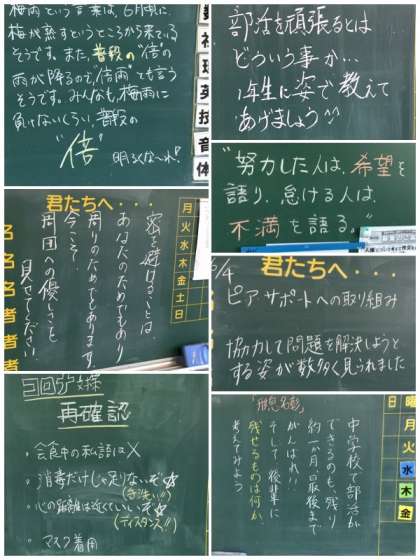 梅雨という言葉は、6月頃に
梅が熟すというところから来ている
そうです。また、普段の"倍"の
雨が降るので、"倍雨"とも言う
そうです。みんなも、梅雨に
負けないくらい、普段の
"倍"
明るくな〜れ!
数
社
理
英
技
音
体
部活を頑張るとは
どういう事か…
1年生に姿で教えて
あげましょう^^
"努力した人は、希望を
語り、怠ける人は、
不満を語る。"
君たちへ・・・
月
火
水
木
金
土
日
密を避けることは、
あなたのためでもあり
周りのためでもあります
今こそ!
周囲への優しさを
見せてください
名
名
者
者
者
君たちへ・・・
ピア・サポートへの取り組み
協力して問題を解決しようと
する姿が数多く見られました
再確認
・会食中の私語は×
・消毒だけじゃ足りないぞ☆
(手洗い!!)
・心の距離は近くていいぞ☆
(ディスタンス!!)
・マスク着用
日
曜
月
火
水
木
金
中学校で部活が
できるのも、残り
約一か月!最後まで
がんばれ!!
そして、後輩に
残せるものは何か、
考えてみよう